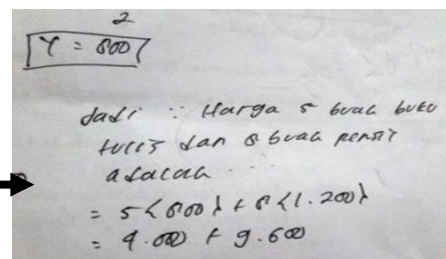 2
Y = 800
Jadi : Harga 5 buah buku
tulis dan 8 buah pensil
adalah
= 5 (800) + 8 (1.200)
= 4.000 + 9.600